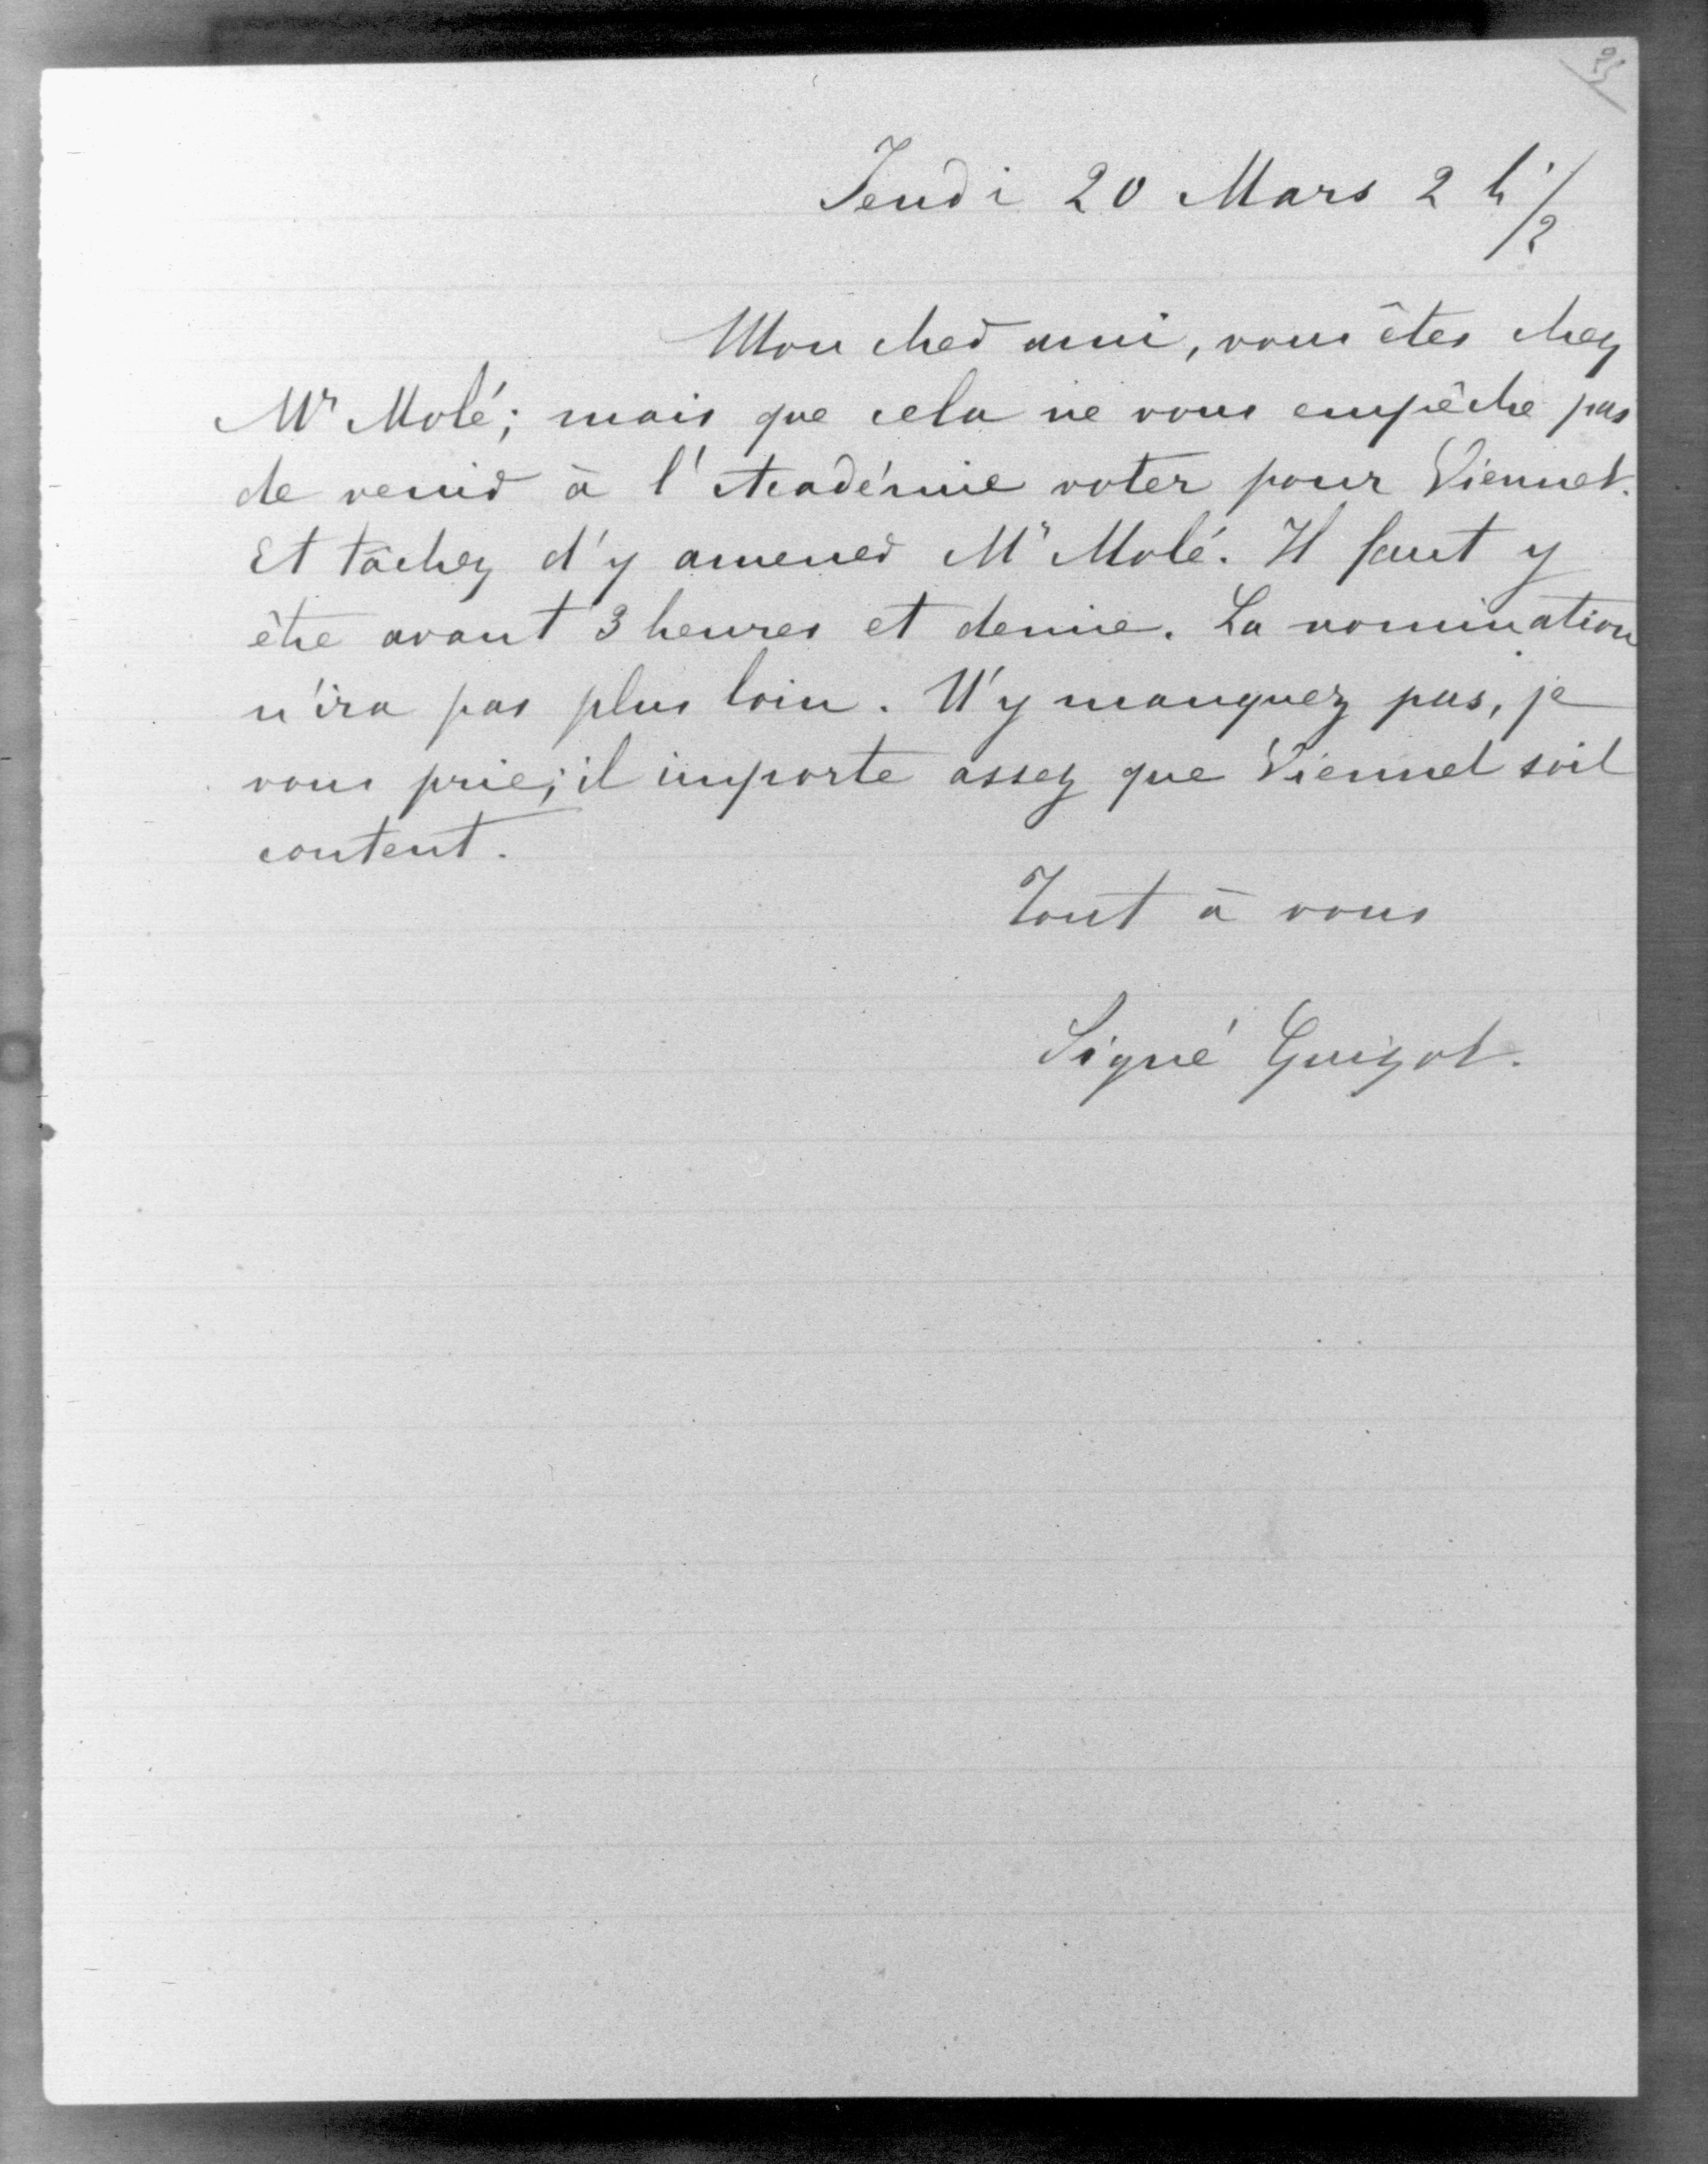 Jeudi 20 Mars 2 h 1/2
Mon cher ami, vous êtes chez
Mr Molé; mais que cela ne vous empêche pas
de venir à l'Académie voter pour Viennet.
Et tâchez d'y amener Mr Molé. Il faut y
être avant 3 heures et demie. La nomination
n'ira pas plus loin. N'y manquez pas, je
vous prie; il importe assez que Viennet soit
content.
Tout à vous
Signé Guizot.